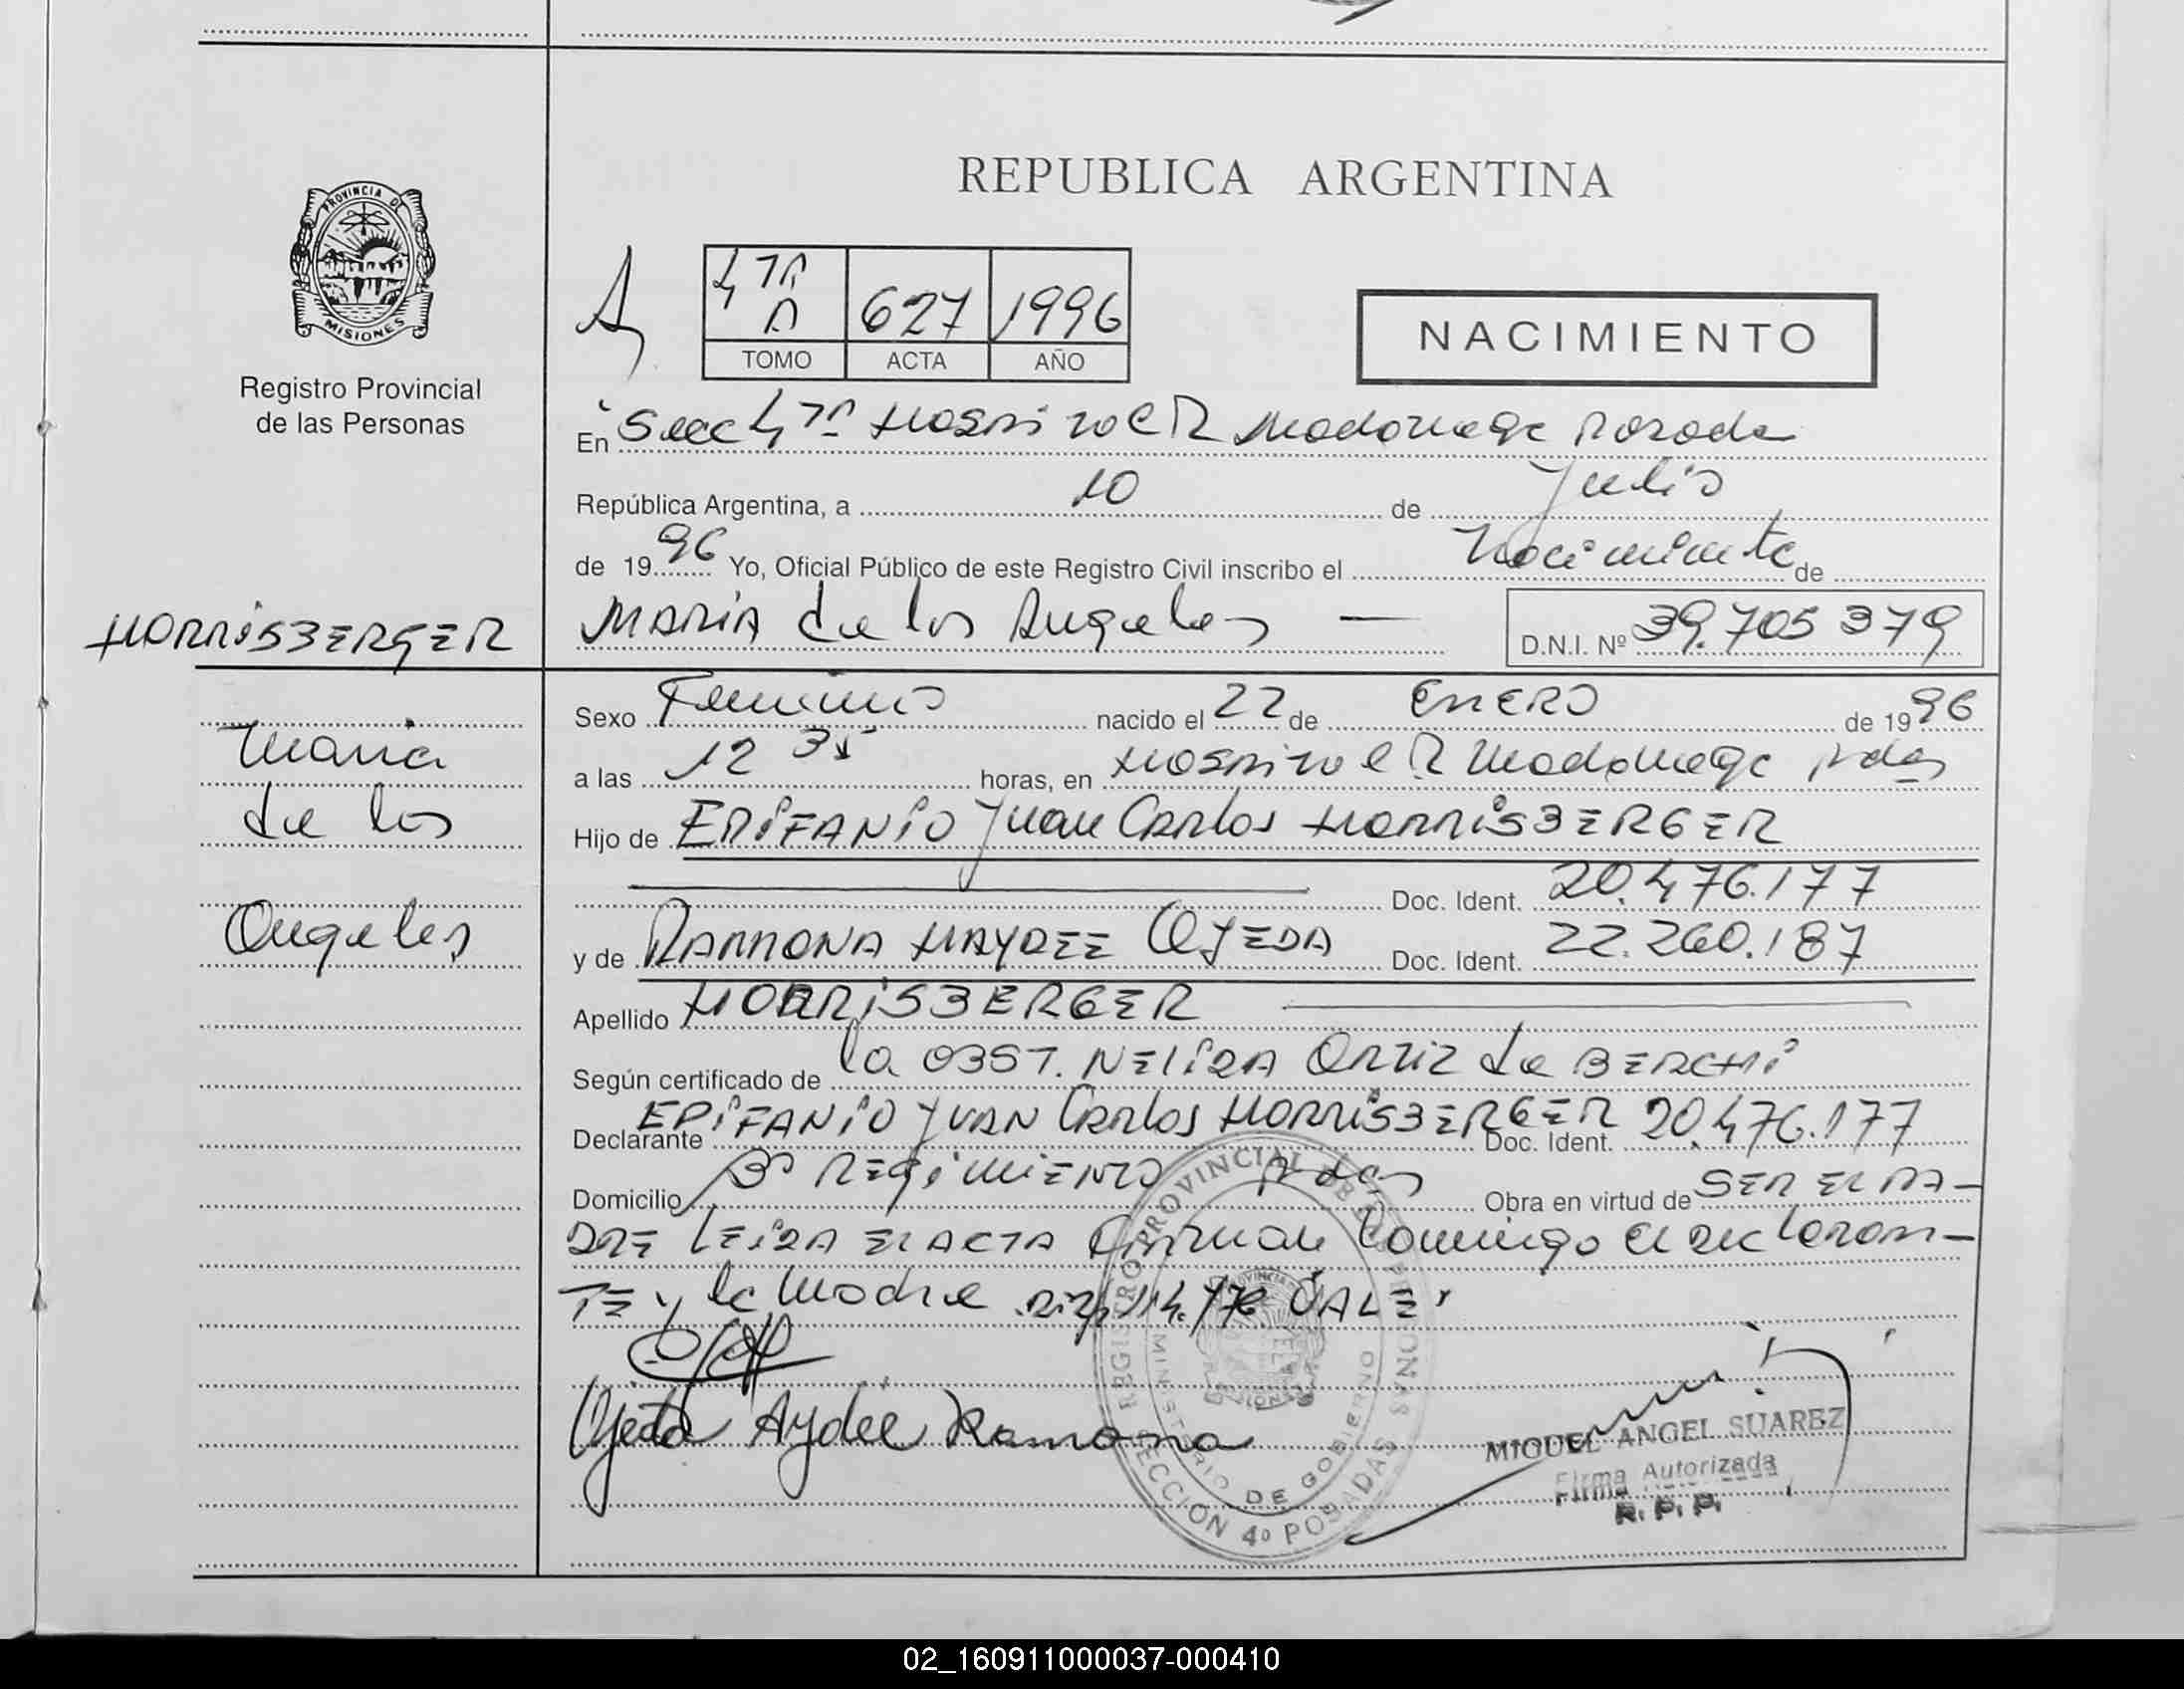 REPUBLICA ARGENTINA
PROVINCIA DE
MISIONES
Registro Provincial
de las Personas
4ta
A
627
1996
TOMO
ACTA
AÑO
NACIMIENTO
En Secc 4ta Hospital R Madariaga Posadas
República Argentina, a 10 de Julio
de 1996 Yo, Oficial Público de este Registro Civil inscribo el Nacimiento de
MARIA de los Angeles —
D.N.I. Nº 39.705 379
HORRISBERGER
Maria
de los
Angeles
Sexo Femenino nacido el 22 de ENERO de 1996
a las 12 35 horas, en Hospital R Madariaga pdas
Hijo de EPIFANIO Juan Carlos HORRISBERGER
Doc. Ident. 20.476.177
y de RAMONA HAYDEE OJEDA Doc. Ident. 22.260.187
Apellido HORRISBERGER
Según certificado de la OBST. NELIDA Ortiz de BERCHI
Declarante EPIFANIO JUAN Carlos HORRISBERGER Doc. Ident. 20.476.177
Domicilio Bº REGIMIENTO pdas Obra en virtud de SER EL PA-
DRE LEIDA EL ACTA Firman Conmigo el declaran-
TE y la Madre 476 VALE
Ojeda Aydée Ramona
REGISTRO PROVINCIAL DE LAS PERSONAS
MINISTERIO DE GOBIERNO
SECCION 4º POSADAS
MIGUEL ANGEL SUAREZ
Firma Autorizada
R. P. P.
02_160911000037-000410